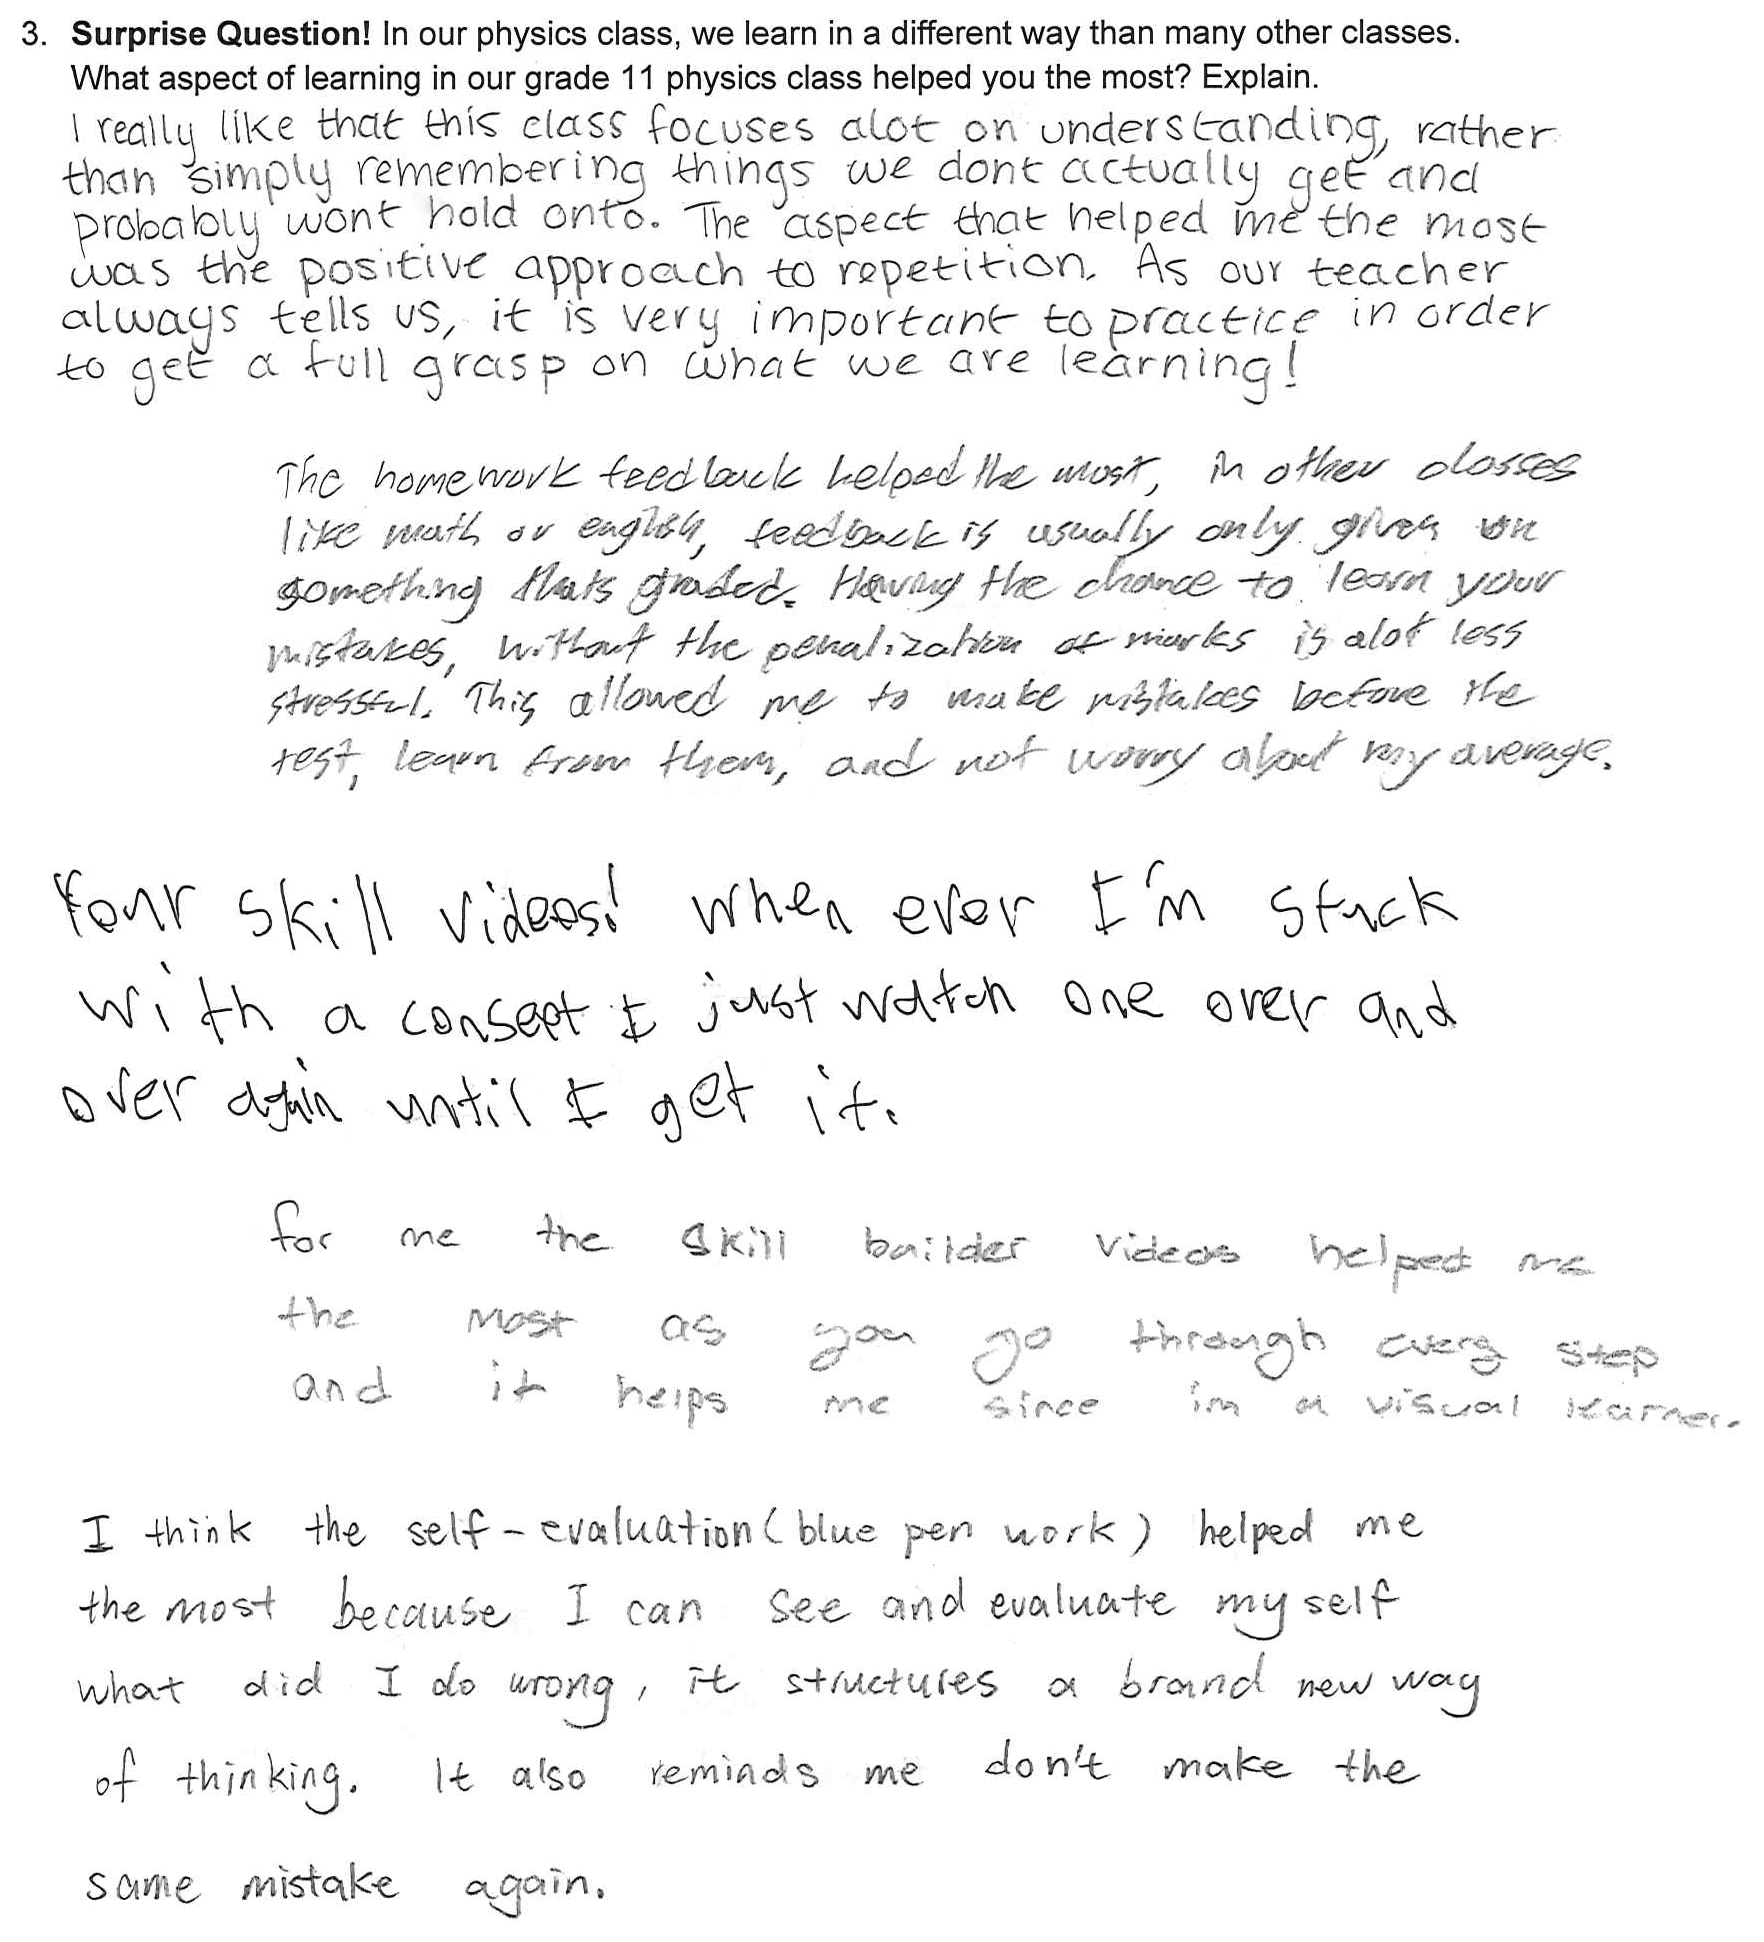 3. Surprise Question! In our physics class, we learn in a different way than many other classes.
What aspect of learning in our grade 11 physics class helped you the most? Explain.
I really like that this class focuses alot on understanding, rather
than simply remembering things we dont actually get and
probably wont hold onto. The aspect that helped me the most
was the positive approach to repetition. As our teacher
always tells us, it is very important to practice in order
to get a full grasp on what we are learning!
The homework feedback helped the most, in other classes
like math or english, feedback is usually only given on
something thats graded. Having the chance to learn your
mistakes, without the penalization of marks is alot less
stressful. This allowed me to make mistakes before the
test, learn from them, and not worry about my average.
Your skill videos! when ever I'm stuck
with a consept I just watch one over and
over again until I get it.
for me the skill builder videos helped me
the most as you go through every step
and it helps me since im a visual learner.
I think the self-evaluation (blue pen work) helped me
the most because I can see and evaluate myself
what did I do wrong, it structures a brand new way
of thinking. It also reminds me don't make the
same mistake again.